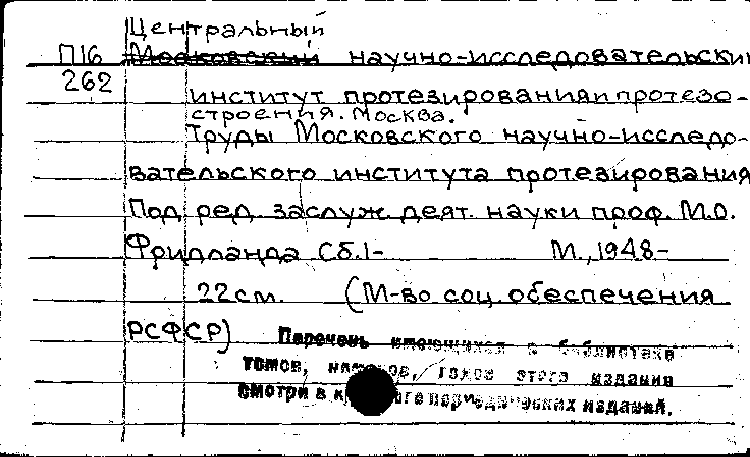 Центральный
П16 Московский научно-исследовательский
262
институт протезирования и протезо-
строения. Москва.
Труды Московского научно-исследо-
вательского института протезирования
Под ред. заслуж. деят. науки проф. М.О.
Фридланда Сб.1- М., 1948-
22 см. (М-во соц. обеспечения
РСФСР)
Перечень имеющихся в библиотеке
томов, номеров, годов этого издания
смотри в периодических изданий.